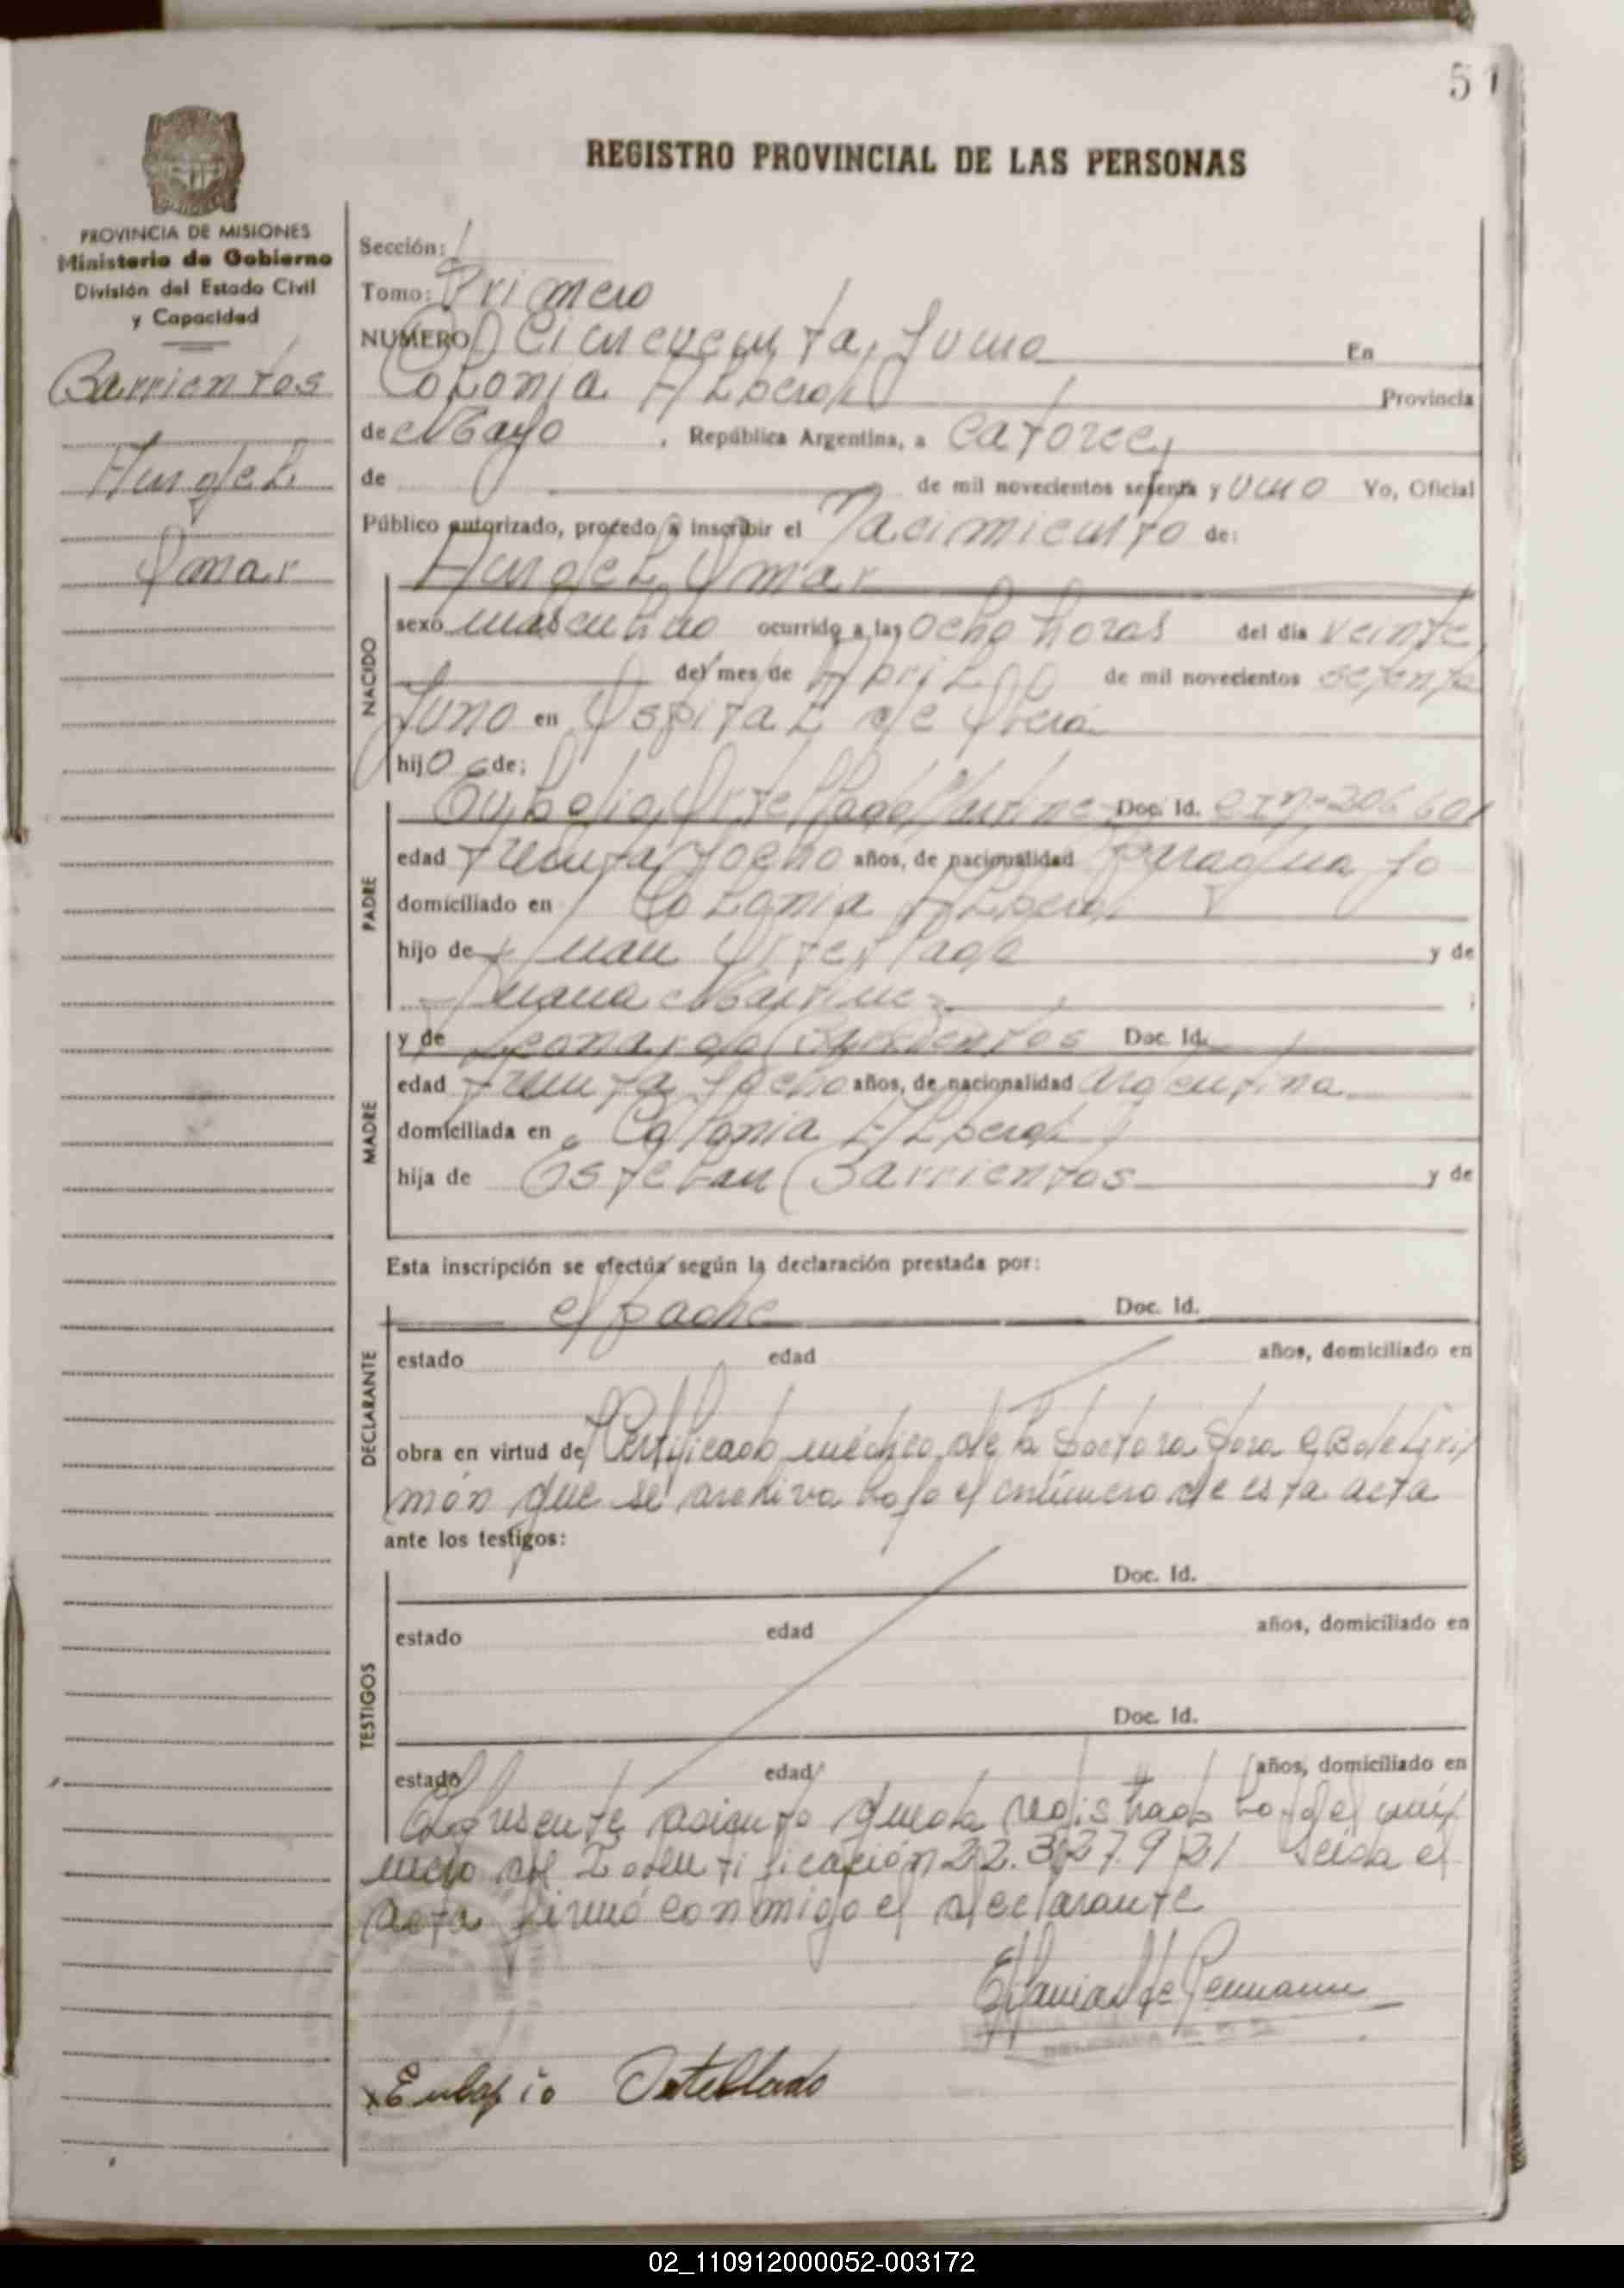 51
REGISTRO PROVINCIAL DE LAS PERSONAS
PROVINCIA DE MISIONES
Ministerio de Gobierno
División del Estado Civil
y Capacidad
Barrientos
Angel
Omar
Sección:
Tomo: Primero
NUMERO Cincuenta y uno En
Colonia Alberdi Provincia
de Mayo , República Argentina, a catorce
de de mil novecientos setenta y uno Yo, Oficial
Público autorizado, procedo a inscribir el Nacimiento de:
Angel Omar
NACIDO
sexo masculino ocurrido a las ocho horas del dia veinte
del mes de Abril de mil novecientos setenta
y uno en Ospital de Oberá
hijo de:
PADRE
Eulogio Ortellado Martinez Doc. Id. 306601
edad treinta y ocho años, de nacionalidad Paraguayo
domiciliado en Colonia Alberdi
hijo de Juan Ortellado y de
Juana Martinez
MADRE
y de Leonarda Barrientos Doc. Id.
edad treinta y ocho años, de nacionalidad argentina
domiciliada en Colonia Alberdi
hija de Esteban Barrientos y de
Esta inscripción se efectúa según la declaración prestada por:
DECLARANTE
el padre Doc. Id.
estado edad años, domiciliado en
obra en virtud de Certificado médico de la Doctora
que se archiva bajo el número de esta acta
ante los testigos:
TESTIGOS
Doc. Id.
estado edad años, domiciliado en
Doc. Id.
estado edad años, domiciliado en
El presente asiento queda registrado bajo el nú
mero de Identificación 22.327.921 Leida el
acta firmó conmigo el declarante
Eulogio Ortellado
02_110912000052-003172